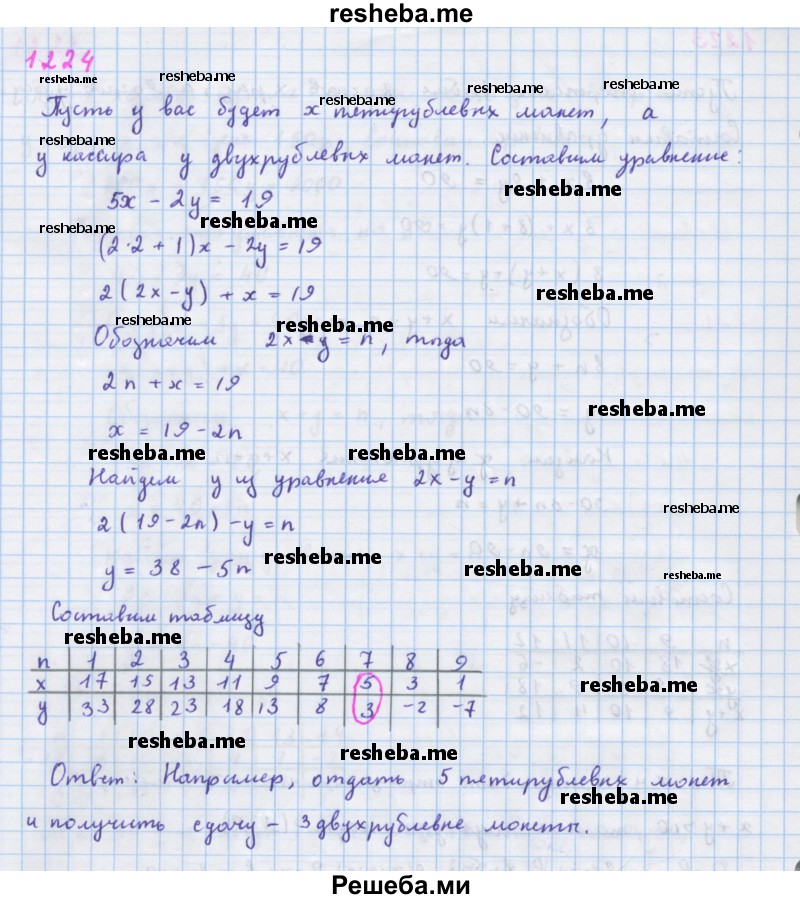 resheba.me
1224
resheba.me resheba.me resheba.me resheba.me
Пусть у вас будет x resheba.me петирублевих манет, а
resheba.me
у кассира y двухрублевих манет. Составим уравнение:
resheba.me
5x - 2y = 19
resheba.me resheba.me
(2·2 + 1)x - 2y = 19
2(2x-y) + x = 19 resheba.me
resheba.me resheba.me
Обозначим 2x-y = n, тогда
2n + x = 19
resheba.me
x = 19 - 2n
resheba.me resheba.me
Найдем y из уравнение 2x-y = n
resheba.me
2(19-2n) - y = n
resheba.me resheba.me resheba.me
y = 38 - 5n
Составим таблицу
resheba.me
n 1 2 3 4 5 6 7 8 9
x 17 15 13 11 9 7 5 3 1
resheba.me
y 33 28 23 18 13 8 3 -2 -7
resheba.me resheba.me
Ответ: Например, отдать 5 петирублевих монет
resheba.me
и получить сдачу - 3 двухрублевие монеты.
Решеба.ми